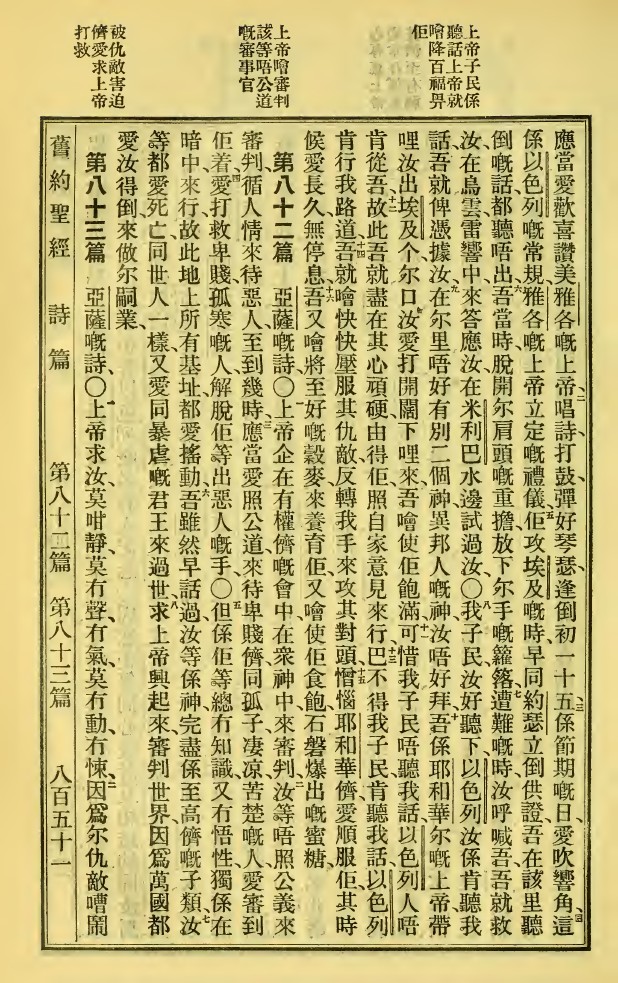 上帝子民係
聽話上帝就
噲降百福畀
佢
上帝噲審判
該等唔公道
嘅審事官
被仇敵害迫
儕愛求上帝
打救
應當愛歡喜讚美雅各嘅上帝、二唱詩打鼓、彈好琴瑟、三逢倒初一十五、係節期嘅日、愛吹響角、四這
係以色列嘅常規、雅各嘅上帝立定嘅禮儀、五佢攻埃及嘅時、早同約瑟立倒供證、吾在該里聽
倒嘅話、都聽唔出、六吾當時脫開尔肩頭嘅重擔、放下尔手嘅籮落、七遭難嘅時、汝呼喊吾、吾就救
汝、在烏雲雷響中來答應汝、在米利巴水邊試過汝、〇八我子民汝好聽下、以色列汝係肯聽我
話、吾就俾憑據汝、九在尔里唔好有別二個神、異邦人嘅神汝唔好拜、十吾係耶和華尔嘅上帝、帶
哩汝出埃及个、尔口汝愛打開闊下哩來、吾噲使佢飽滿、十一可惜我子民唔聽我話、以色列人唔
肯從吾、十二故此吾就盡在其心頑硬、由得佢照自家意見來行、十三巴不得我子民肯聽我話、以色列
肯行我路道、十四吾就噲快快壓服其仇敵、反轉我手來攻其對頭、十五憎惱耶和華儕、愛順服佢、其時
候愛長久無停息、十六吾又噲將至好嘅穀麥來養育佢、又噲使佢食飽石磐爆出嘅蜜糖、
第八十二篇　亞薩嘅詩〇一上帝企在有權儕嘅會中、在衆神中來審判、二汝等唔照公義來
審判、循人情來待惡人、至到幾時、三應當愛照公道來待卑賤儕同孤子、凄凉苦楚嘅人、愛審到
佢着、四愛打救卑賤孤寒嘅人、解脫佢等出惡人嘅手、〇五但係佢等總冇知識、又冇悟性、獨係在
暗中來行、故此地上所有基址、都愛搖動、六吾雖然早話過汝等係神、完盡係至高儕嘅子類、七汝
等都愛死亡、同世人一樣、又愛同暴虐嘅君王來過世、八求上帝興起來、審判世界、因爲萬國都
愛汝得倒來做尔嗣業、
第八十三篇　亞薩嘅詩〇一上帝求汝莫咁靜、莫冇聲冇氣、莫冇動冇悚、二因爲尔仇敵嘈鬧、
舊約聖經　詩篇　第八十二篇　第八十三篇　八百五十一